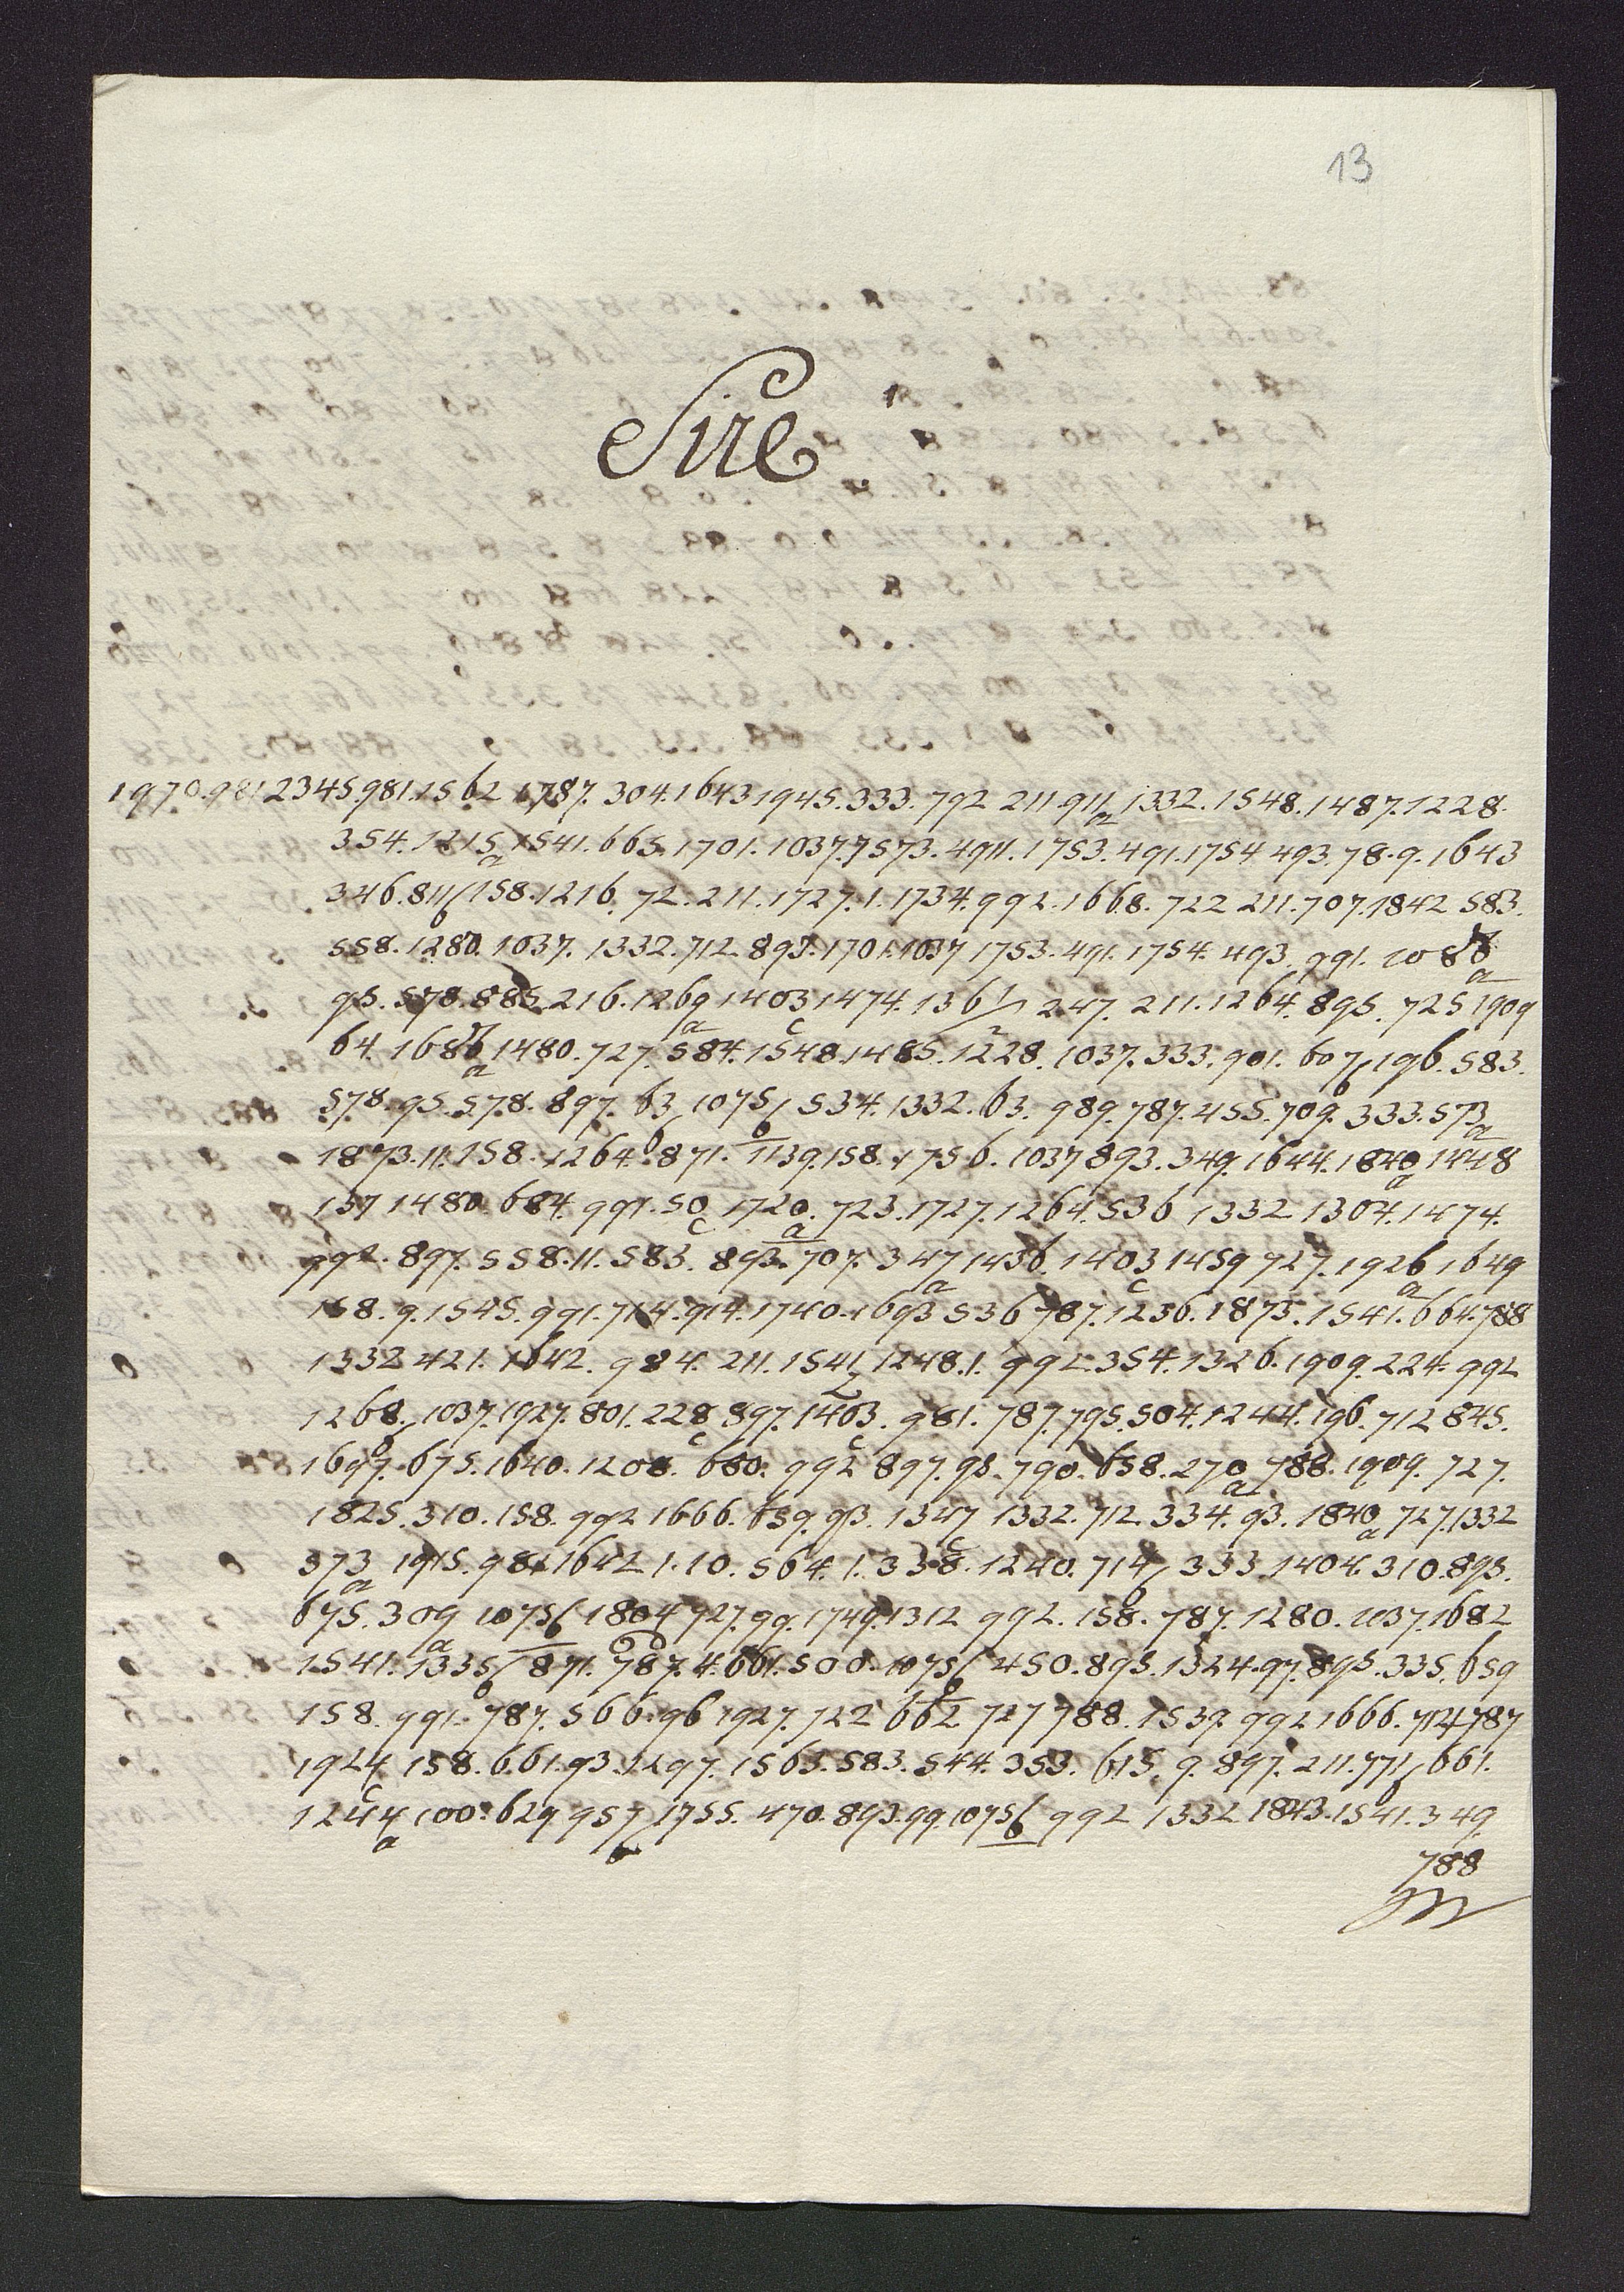 13
Sire
1970.981 2345.981.1562 1787. 304.1643 1945.333. 792 211.911a 1332.1548.1487.1228.
354.1215a 1541.665.1701.1037.7573.4911.1753.491.1754.493.78.9.1643
346.811b 158.1216. 72.211.1727.1.1734.992.1668.722 211.707.1842 583.
558.1280.1037.1332.712.895.1701.1037 1753.491.1754.493.991.
95.578.885.216.1269a 1403c 1474. 247.211.1264.895.725 1909
64. 1480.727.584.1548.1485.1228.1037.333.901.607b 196.583.
578.95.578.897.63 1075b 534.1332.63.989.787.455.709.333.573a
1873.11.158.1264.871.1139.158.1756.1037 893.349.1644.1840a 1448
137 1480.684.991.50c 1720a 723.1727.1264.536 1332 1304.1474.
992.897.558.11.583.893.707.347a 1436.1403c 1459 727.1926a 1649
158.9.1545.991.714.914.1740.1693 536 787.1236.1873.1541.664.788
1332 421.1642.984.211.1541 1248.1.992.354.1326.1909.224.992
1268b 1037.1927.801.228c 897.1403c 981.787.795.504.1244.196.712 845.
1697.675.1640.1208.680.992 897.95.790.658.270a 788.1909.727.
1825.310.158.992 1666.659.93.1347 1332.712.334.93.1840a 727.1332
573a 1915.981 1642 1.10.564.1.338.1240.714b 333 1404.310.895.
675.309a 1075b 1804 727.99.1749.1312 992.158.787.1280.1037.1682
1541.1335b 871.787.4.661.500.1075b 450.895.1324.97.895.335.659
158.991.787.566.96 1927.722 662 727 788.1539.992 1666.714 787
1924c 158.661.93.1297.1563.583.544.353.615.9.897.211.771b 661.
1244a 100.629 957b 1755.470.893.99.1075b 992 1332 1843.1541.349.
788